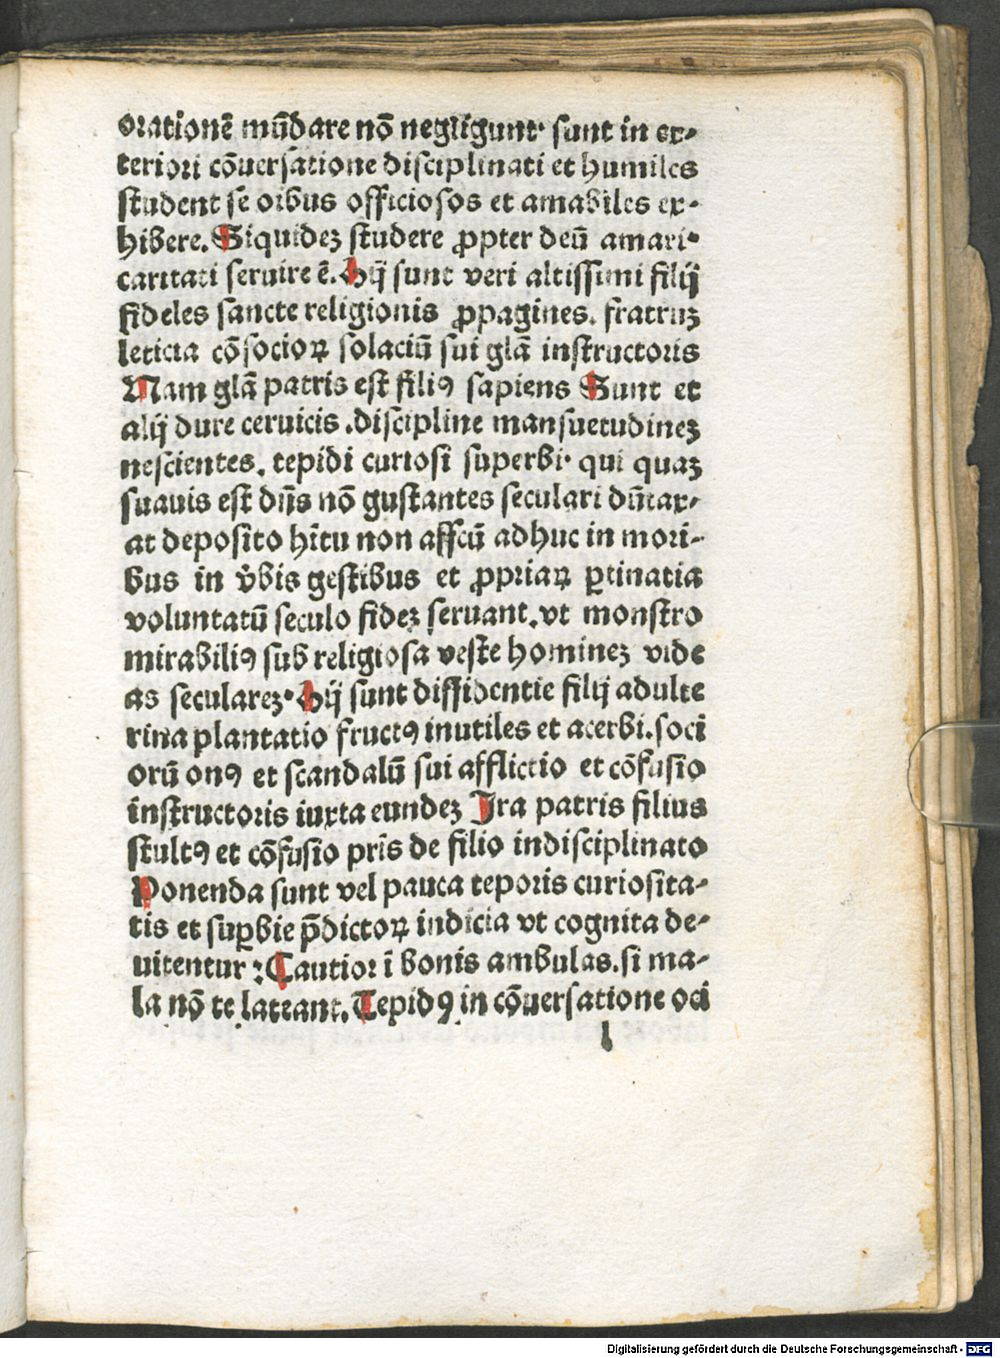 orationē mūdare nō negligunt· sunt in ex-
teriori cōuersatione disciplinati et humiles
student se oībus officiosos et amabiles ex-
hibere. Siquidez studere ꝓpter deū amari·
caritati seruire ē. Hij sunt veri altissimi filij
fideles sancte religionis ꝓpagines. fratruz
leticia cōsocioꝝ solaciū sui glā instructoris
Nam glā patris est filiꝰ sapiens Sunt et
alij dure ceruicis .discipline mansuetudinez
nescientes. tepidi curiosi superbi· qui quaz
suauis est dn̄s nō gustantes seculari dūtax-
at deposito hītu non affcū adhuc in mori-
bus in v̄bis gestibus et ꝓpriaꝝ ꝑtinatia
voluntatū seculo fidez seruant. vt monstro
mirabiliꝰ sub religiosa veste hominez vide
as secularez· Hij sunt diffidentie filij adulte
rina plantatio fructꝰ inutiles et acerbi. soci
orū onꝰ et scandalū sui afflictio et cōfusio
instructoris iuxta eundez Ira patris filius
stultꝰ et cōfusio pr̄is de filio indisciplinato
Ponenda sunt vel pauca teporis curiosita-
tis et suꝑbie p̄dictoꝝ indicia vt cognita de-
uitentur: Cautior ī bonis ambulas. si ma-
la nō te lateant. Tepidꝰ in cōuersatione oci
Digitalisierung gefördert durch die Deutsche Forschungsgemeinschaft - DFG